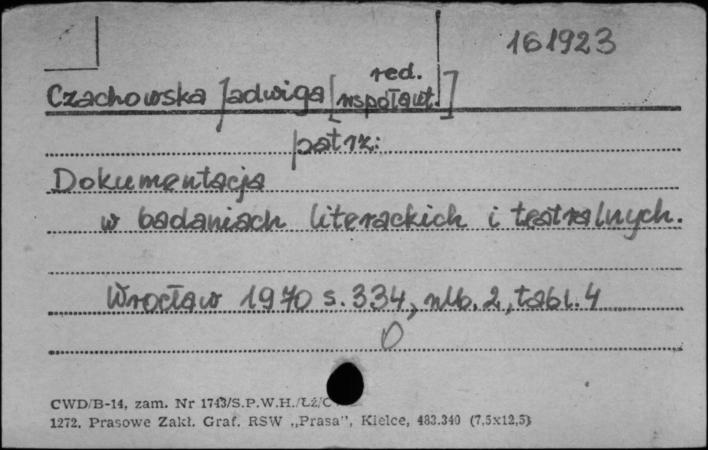 161923
Czachowska Jadwiga [red. współaut.]
patrz:
Dokumentacja
w badaniach literackich i teatralnych.
Wrocław 1970 s. 334, nlb. 2, tabl. 4
CWD/B-14, zam. Nr 1743/S.P.W.H./Łź/C
1272. Prasowe Zakł. Graf. RSW „Prasa", Kielce, 483.340 (7,5x12,5)